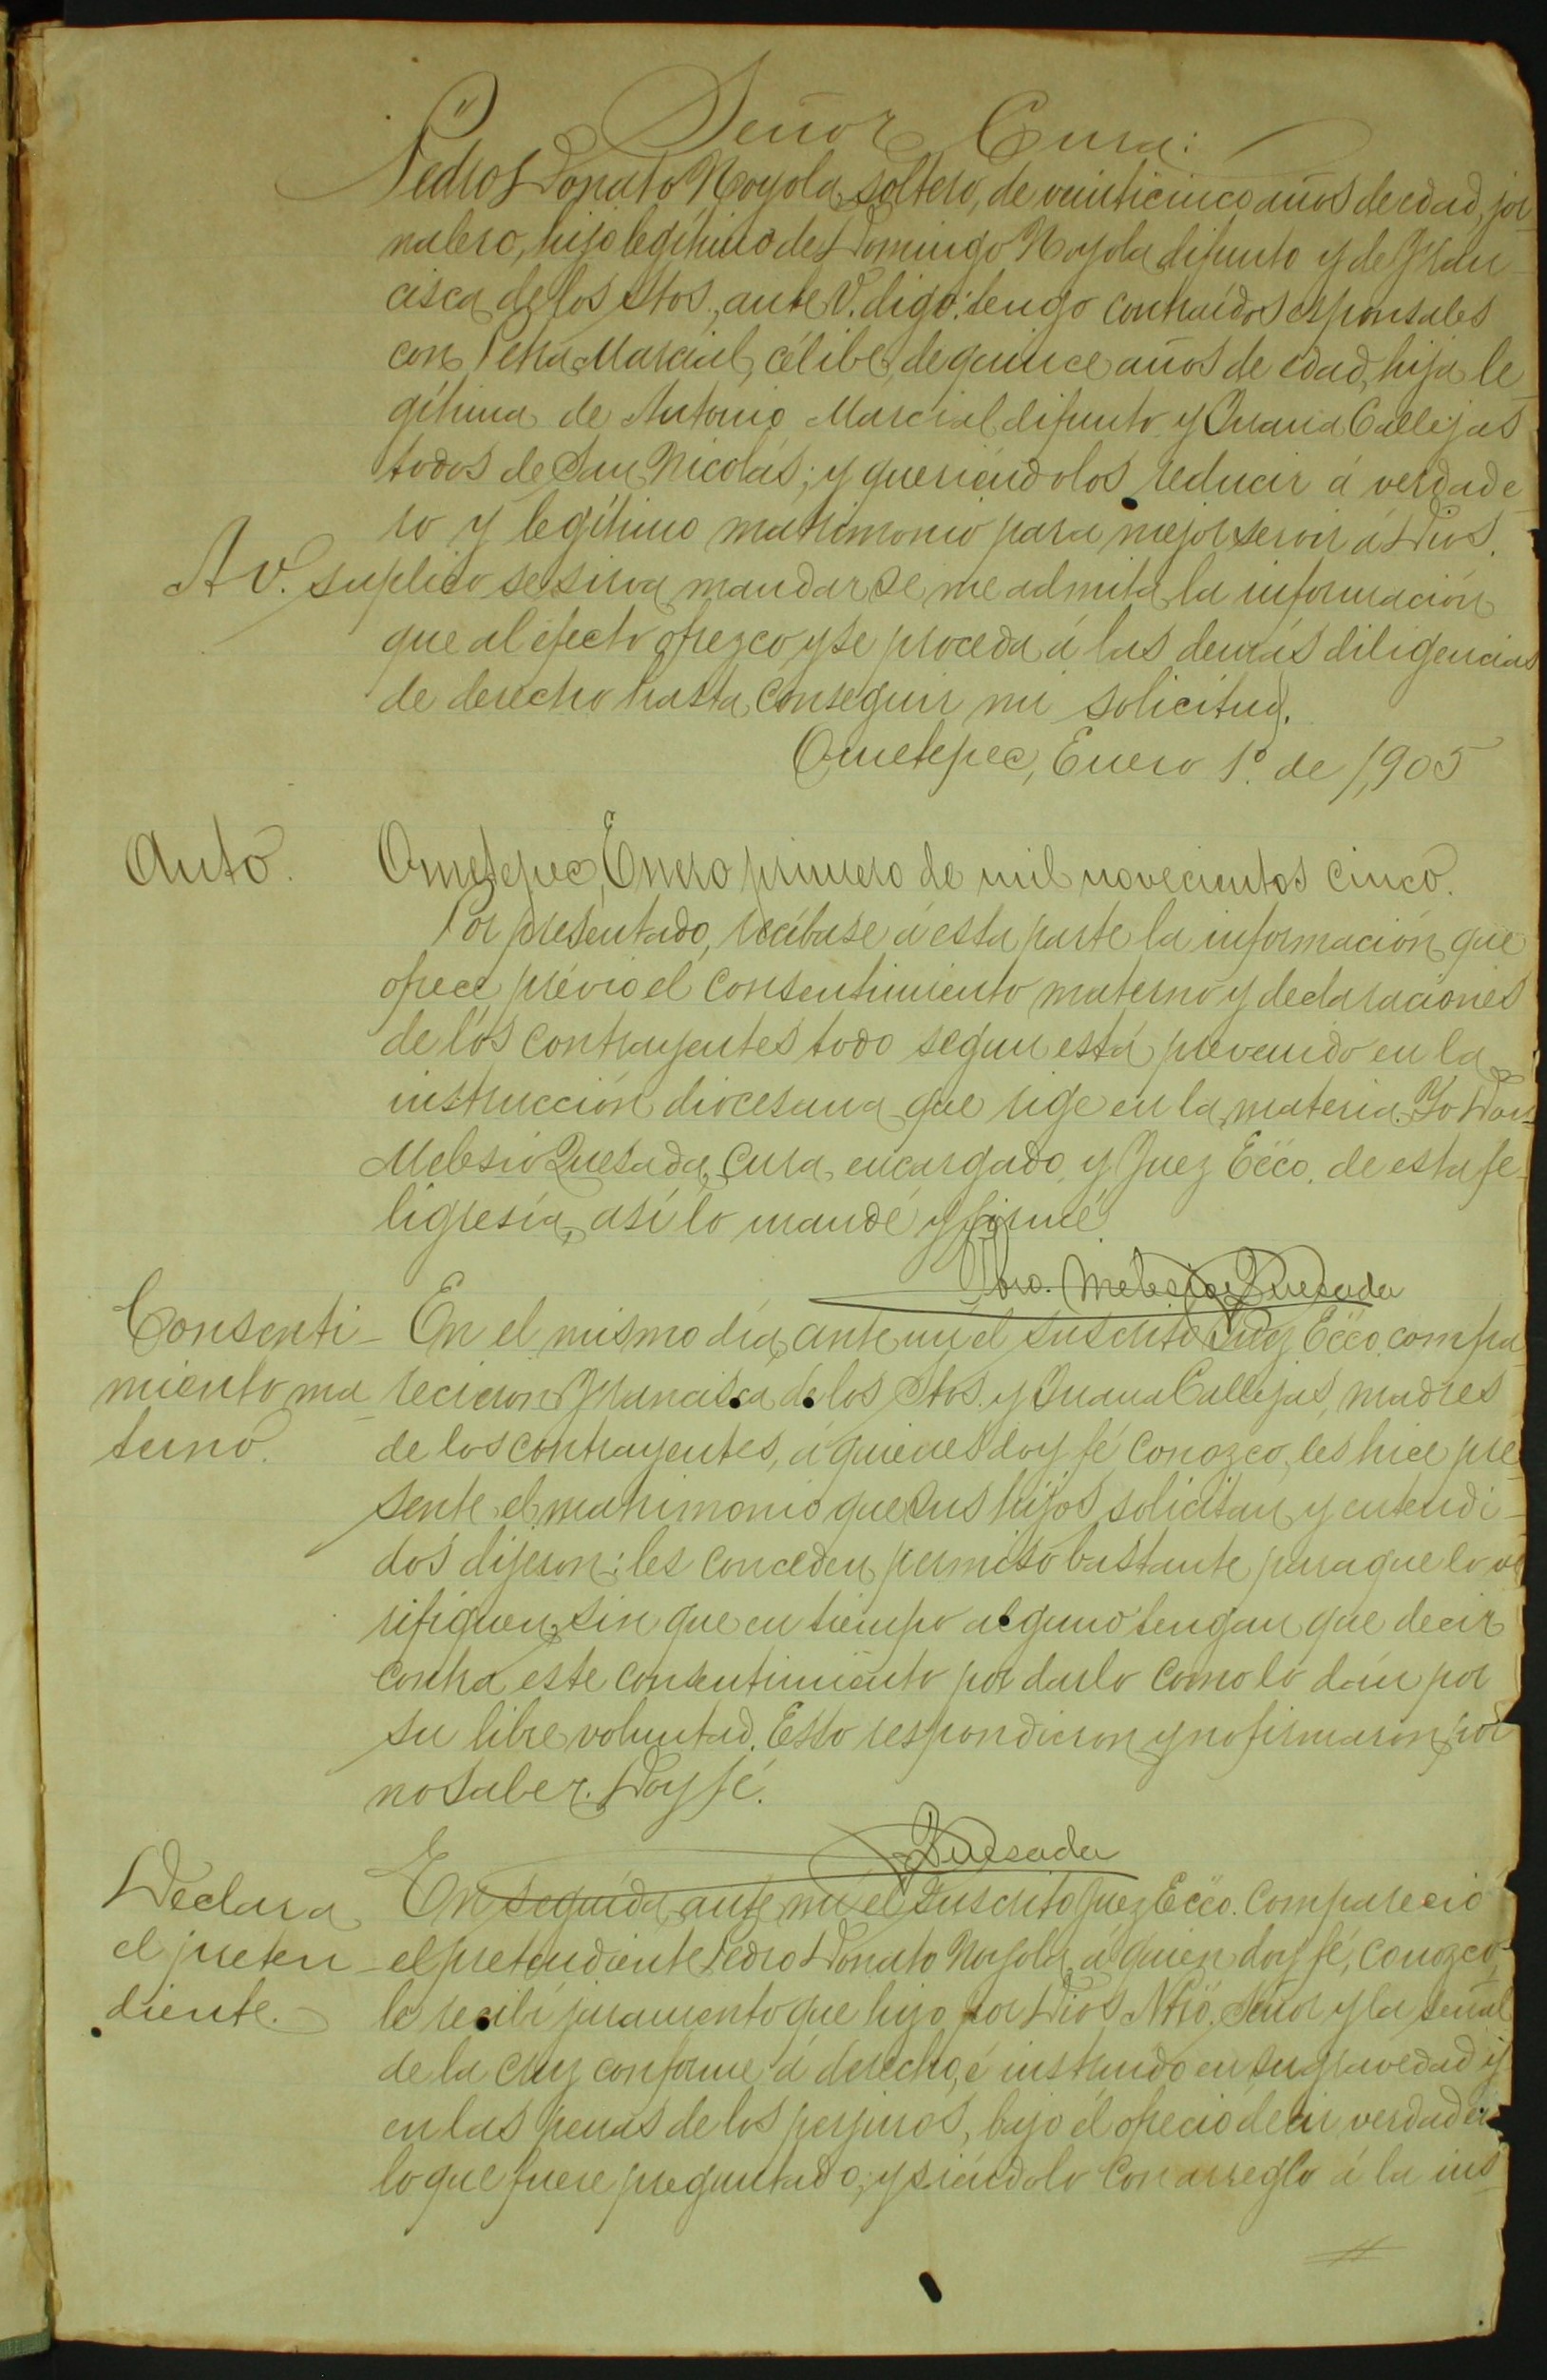 Señor Cura:
Pedro Donato Noyola, soltero, de veinticinco años de edad, jor-
nalero, hijo legítimo de Domingo Noyola difunto y de Fran-
cisca de los Stos., ante V. digo: tengo contraídos esponsales
con Petra Marcial, célibe, de quince años de edad, hija le-
gítima de Antonio Marcial difunto y Juana Callejas
todos de San Nicolás; y queriéndolos reducir á verdade-
ro y legítimo matrimonio para mejor servir á Dios.
A V. suplico se sirva mandar se me admita la información
que al efecto ofrezco y se proceda á las demás diligencias
de derecho hasta conseguir mi solicitud.
Ometepec, Enero 1º de 1,905
Auto.
Ometepec, Enero primero de mil novecientos cinco.
Por presentado, recíbase á esta parte la información que
ofrece prévio el consentimiento materno y declaraciones
de los contrayentes todo segun está prevenido en la
instrucción diocesana que rige en la materia. Yo Don
Melesio Quesada, Cura encargado y Juez Ecco. de esta fe-
ligresía, así lo mandé y firmé.
Pbro. Melesio Quesada
Consenti-
miento ma-
terno.
En el mismo día, ante mí el suscrito Juez Ecco. compa-
recieron Francisca de los Stos. y Juana Callejas, madres
de los contrayentes, á quienes doy fé conozco, les hice pre-
sente el matrimonio que sus hijos solicitan y entendi-
dos dijeron: les conceden permiso bastante para que lo ve-
rifiquen, sin que en tiempo alguno tengan que decir
contra este consentimiento por darlo como lo dan por
su libre voluntad. Esto respondieron y no firmaron por
no saber. Doy fé.
Quesada
Declara
el preten-
diente.
En seguida, ante mí el suscrito Juez Ecco. compareció
el pretendiente Pedro Donato Noyola, á quien doy fé, conozco,
le recibí juramento que hizo por Dios Ntro. Señor y la señal
de la cruz conforme á derecho, é instruido en su gravedad y
en las penas de los perjuros, bajo él ofreció decir verdad en
lo que fuere preguntado; y siéndolo con arreglo á la ins-